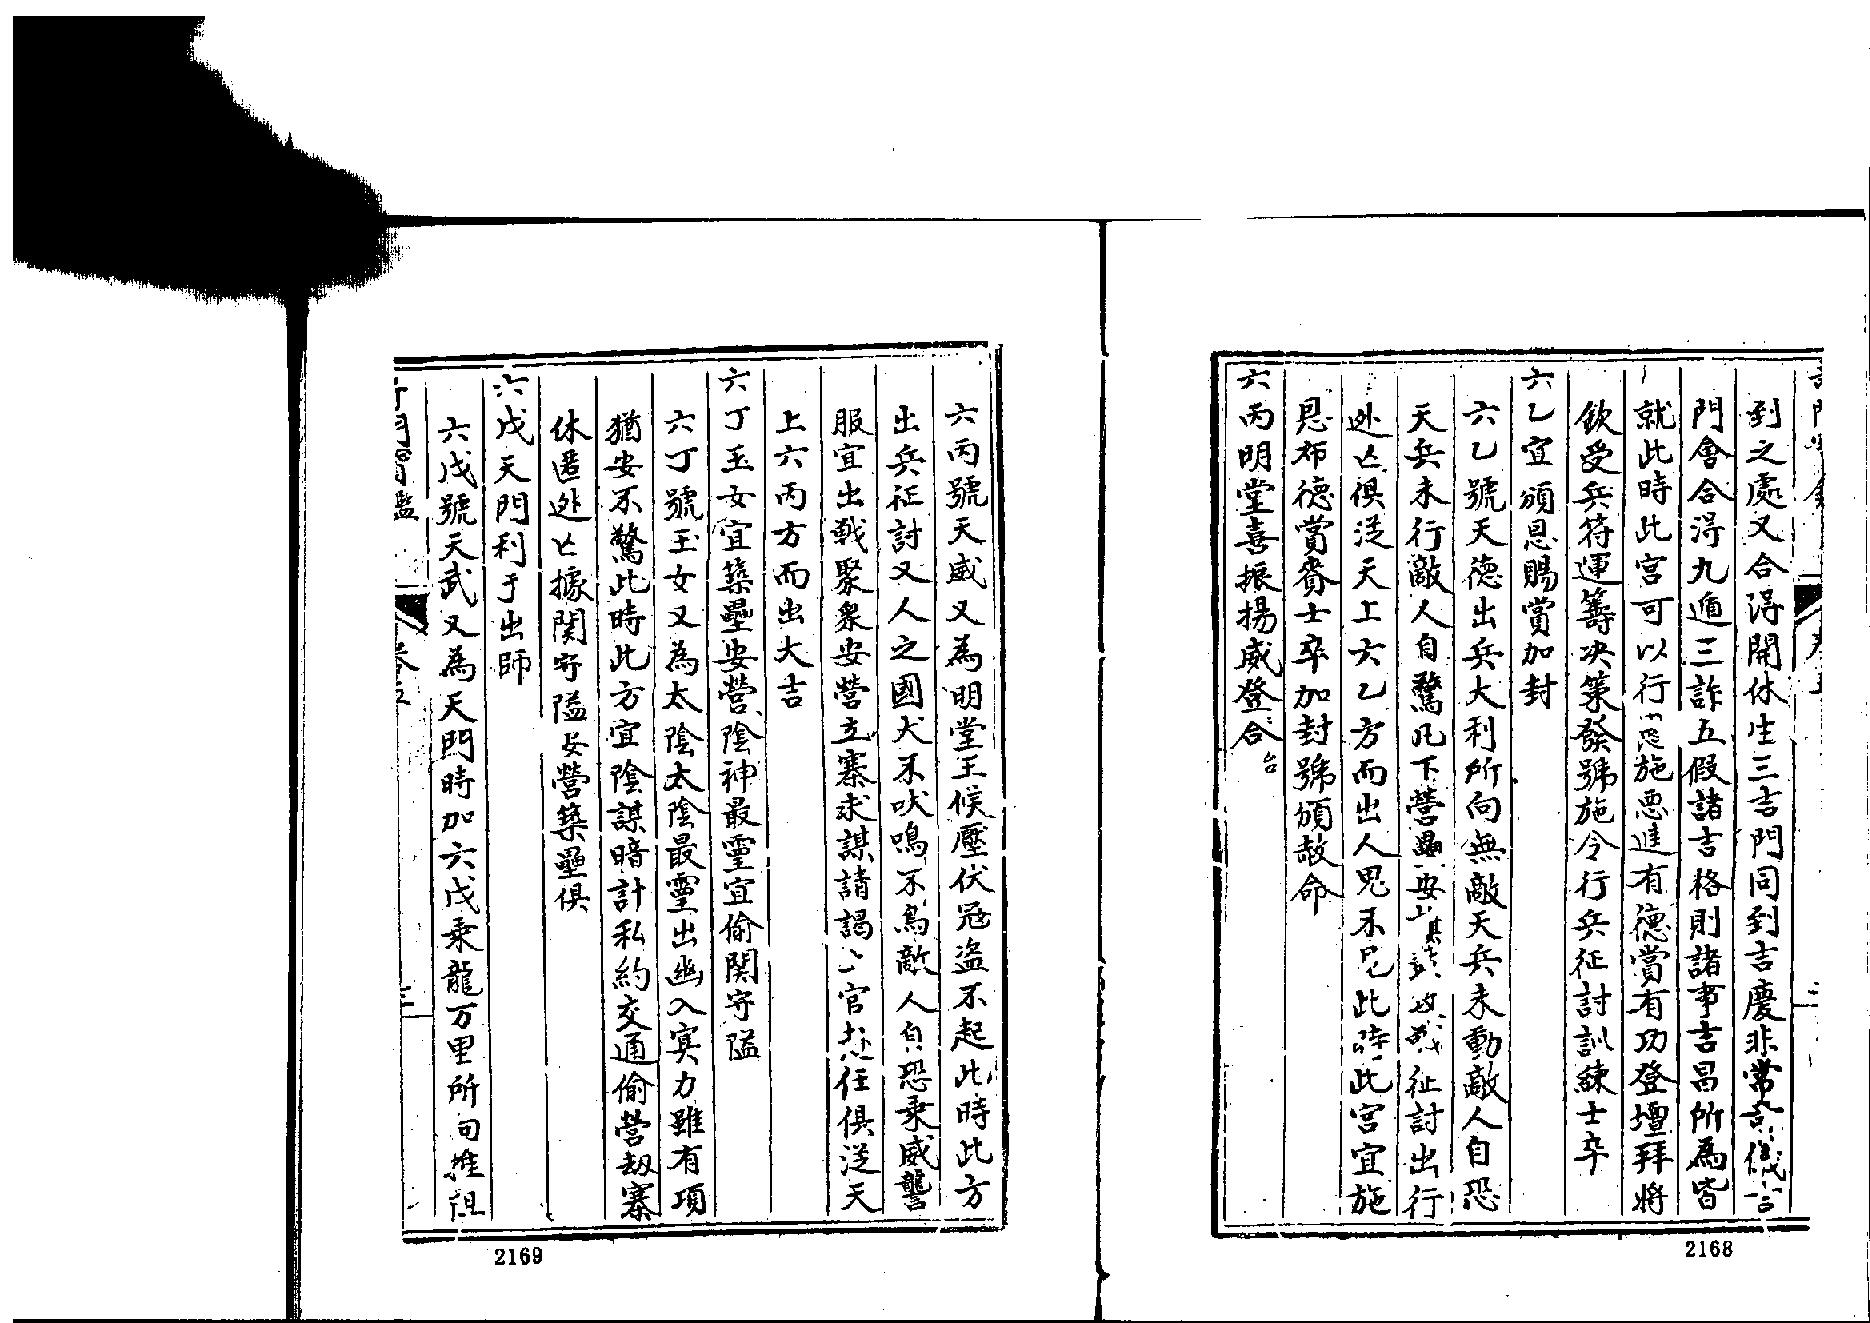 到之處又合得開休生三吉門同到吉慶非常
門會合得九遁三詐五假諸吉格則諸事吉昌所為皆
就此時此宮可以行施恩進有德賞有功登壇拜將
欽受兵符運籌决策發號施令行兵征討訓練士卒
六乙宜頒恩賜賞加封
六乙號天德出兵大利所向無敵天兵未動敵人自恐
天兵未行敵人自驚凡下營安征討出行
逃亡俱從天上六乙方而出人鬼不見此時此宮宜施
恩布德賞賚士卒加封號頒赦命
六丙明堂喜振揚威登合台
2168
六丙號天威又為明堂王候壓伏冦盜不起此時此方
出兵征討又人之國犬不吠鳴不鳥敵人自恐乘威讋
服宜出戰聚衆安營立寨求謀請謁官任俱從天
上六丙方而出大吉
六丁玉女宜築壘安營陰神最靈宜偷関守隘
六丁號玉女又為太陰太陰最靈出幽入㝠力雖有項
猶安不驚此時此方宜陰謀暗計私約交通偷營刼寨
休匿逃亡據関守隘安營築壘俱
六戊天門利于出師
六戊號天武又為天門時加六戊乘龍万里所向誰阻
2169